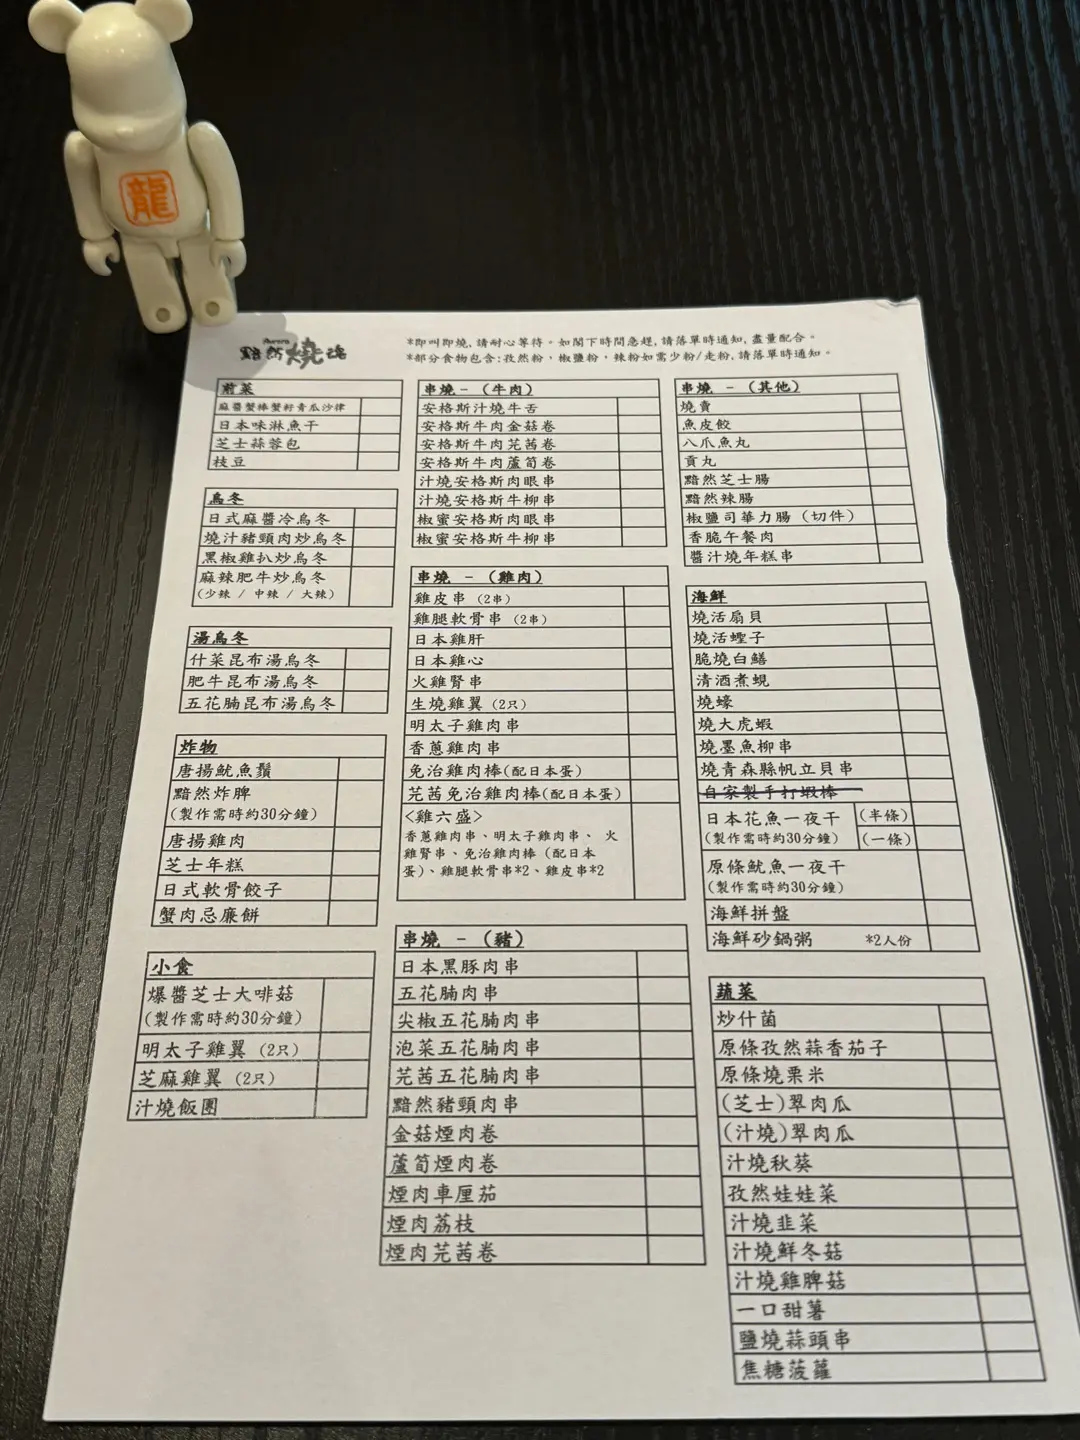 龍
黯然燒魂
*即叫即燒,請耐心等待。如閣下時間急趕,請落單時通知,盡量配合。
*部分食物包含:孜然粉，椒鹽粉，辣粉如需少粉/走粉,請落單時通知。
前菜
麻醬蟹棒蟹籽青瓜沙律
日本味淋魚干
芝士蒜蓉包
枝豆
烏冬
日式麻醬冷烏冬
燒汁豬頸肉炒烏冬
黑椒雞扒炒烏冬
麻辣肥牛炒烏冬
(少辣 / 中辣 / 大辣)
湯烏冬
什菜昆布湯烏冬
肥牛昆布湯烏冬
五花腩昆布湯烏冬
炸物
唐揚魷魚鬚
黯然炸脾
(製作需時約30分鐘)
唐揚雞肉
芝士年糕
日式軟骨餃子
蟹肉忌廉餅
小食
爆醬芝士大啡菇
(製作需時約30分鐘)
明太子雞翼 (2只)
芝麻雞翼 (2只)
汁燒飯團
串燒 - (牛肉)
安格斯汁燒牛舌
安格斯牛肉金菇卷
安格斯牛肉芫茜卷
安格斯牛肉蘆筍卷
汁燒安格斯肉眼串
汁燒安格斯牛柳串
椒蜜安格斯肉眼串
椒蜜安格斯牛柳串
串燒 - (雞肉)
雞皮串 (2串)
雞腿軟骨串 (2串)
日本雞肝
日本雞心
火雞腎串
生燒雞翼 (2只)
明太子雞肉串
香蔥雞肉串
免治雞肉棒(配日本蛋)
芫茜免治雞肉棒(配日本蛋)
<雞六盛>
香蔥雞肉串、明太子雞肉串、 火
雞腎串、免治雞肉棒 (配日本
蛋)、雞腿軟骨串*2、雞皮串*2
串燒 - (豬)
日本黑豚肉串
五花腩肉串
尖椒五花腩肉串
泡菜五花腩肉串
芫茜五花腩肉串
黯然豬頸肉串
金菇煙肉卷
蘆筍煙肉卷
煙肉車厘茄
煙肉荔枝
煙肉芫茜卷
串燒 - (其他)
燒賣
魚皮餃
八爪魚丸
貢丸
黯然芝士腸
黯然辣腸
椒鹽司華力腸 (切件)
香脆午餐肉
醬汁燒年糕串
海鮮
燒活扇貝
燒活蟶子
脆燒白鱔
清酒煮蜆
燒蠔
燒大虎蝦
燒墨魚柳串
燒青森縣帆立貝串
自家製手打蝦棒
日本花魚一夜干 (半條)
(製作需時約30分鐘) (一條)
原條魷魚一夜干
(製作需時約30分鐘)
海鮮拼盤
海鮮砂鍋粥 *2人份
蔬菜
炒什菌
原條孜然蒜香茄子
原條燒粟米
(芝士)翠肉瓜
(汁燒)翠肉瓜
汁燒秋葵
孜然娃娃菜
汁燒韭菜
汁燒鮮冬菇
汁燒雞脾菇
一口甜薯
鹽燒蒜頭串
焦糖菠蘿